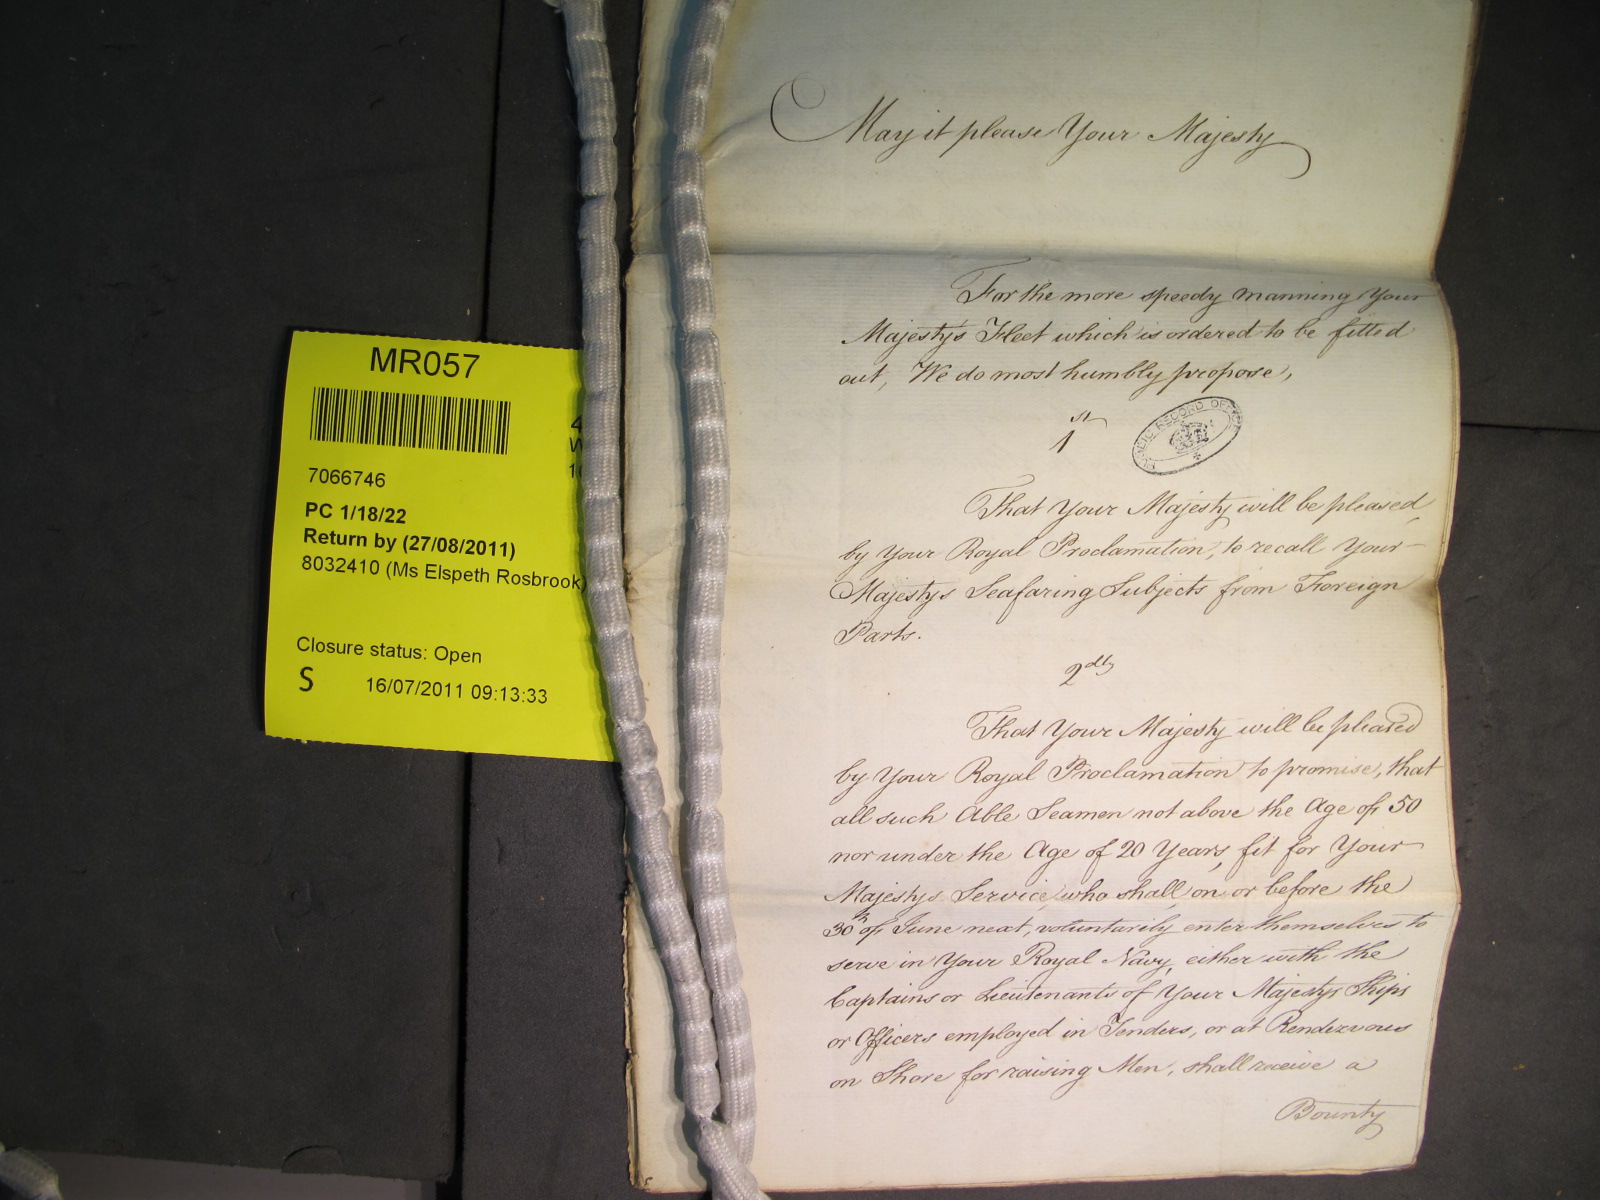 MR057
7066746
PC 1/18/22
Return by (27/08/2011)
8032410 (Ms Elspeth Rosbrook
Closure status: Open
S 16/07/2011 09:13:33
4
W
10
May it please Your Majesty
For the more speedy manning Your
Majesty's Fleet which is ordered to be fitted
out, We do most humbly propose,
1st
PUBLIC RECORD OFFICE
That Your Majesty will be pleased,
by Your Royal Proclamation, to recall Your
Majestys Seafaring Subjects from Foreign
Parts.
2dly
That Your Majesty will be pleased
by Your Royal Proclamation to promise, that
all such Able Seamen not above the Age of 50
nor under the Age of 20 Years, fit for Your
Majestys Service, who shall, on or before the
30th of June next, voluntarily enter themselves to
serve in Your Royal Navy, either with the
Captains or Lieutenants of Your Majestys Ships
or Officers employed in Tenders, or at Rendezvous
on Shore for raising Men, shall receive a
Bounty